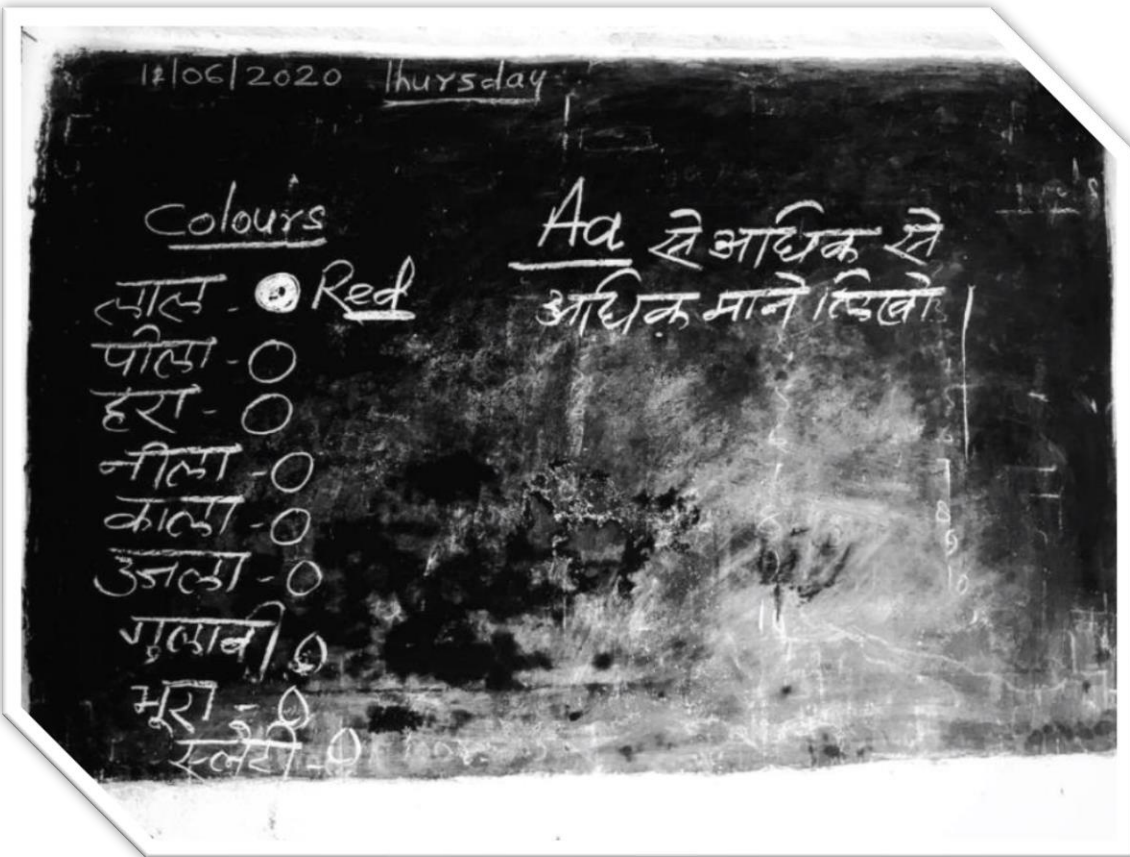 11/06/2020 Thursday
Colours
लाल - Red
पीला -
हरा -
नीला -
काला -
उजला -
गुलाबी
भूरा -
स्लेटी -
Aa से अधिक से
अधिक माने लिखो।